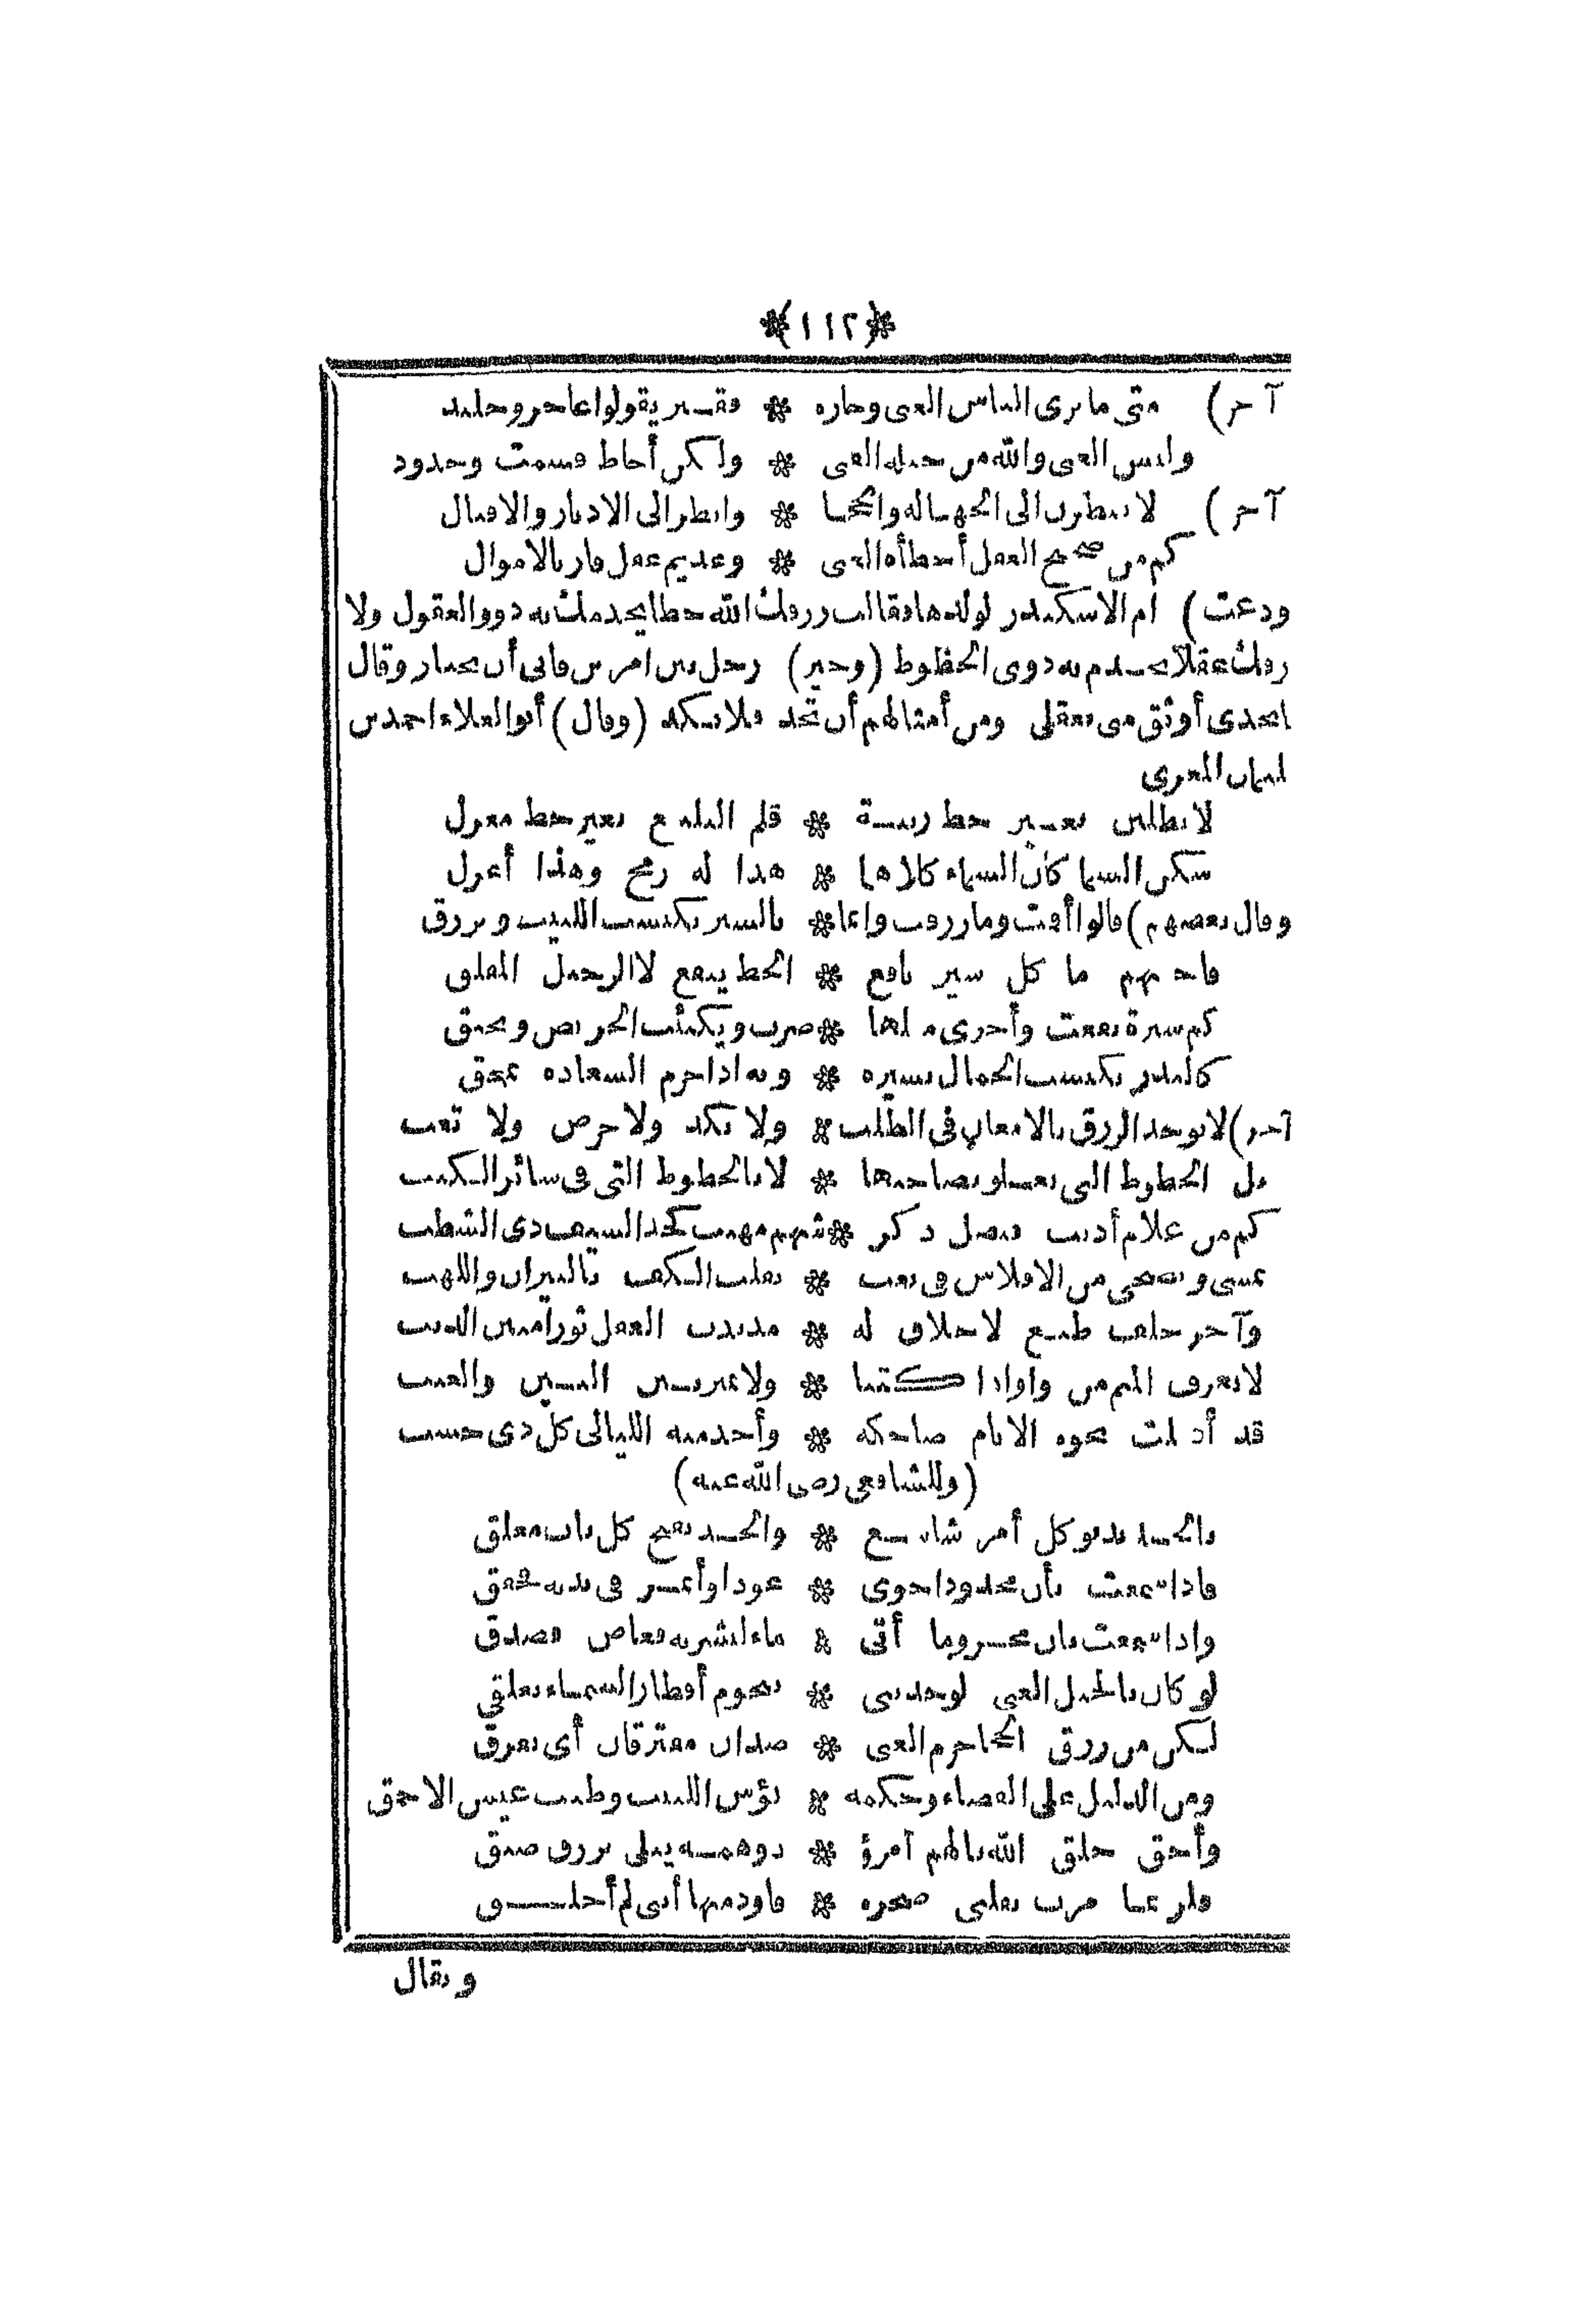 ❋(١١٢)❋
آخر) متى ما يرى الناس الغنى وجاره ❋ فقير يقولوا عاجز وجليد
وليس الغنى والله من حيله الغنى ❋ ولكن أحاظ قسمت وجدود
آخر) لا تنظرن الى الجهاله والحجا ❋ وانظر الى الادبار والاقبال
كم من صحيح العقل أخطأه الغنى ❋ وعديم عقل فاز بالاموال
ودعت) ام الاسكندر لولدها فقالت رزقك الله حظا يخدمك به ذوو العقول ولا
رزقك عقلا تخدم به ذوى الحظوظ (وخير) رجل بين امرين فابى أن يختار وقال
ابجدى أوثق منى بعقلى ومن أمثالهم أن تجد فلا تكد (وقال) أبو العلاء احمد بن
المعرى
لا تطلبن بغير حظ رتبة ❋ قلم البليغ بغير حظ مغزل
سكن السما كان السماء كلاهما ❋ هذا له رمح وهذا أعزل
وقال بعضهم) قالوا أقمت وما رزقت وانما ❋ بالسير يكتسب اللبيب ويرزق
فاجبتهم ما كل سير نافع ❋ الحظ ينفع لا الرحيل المقلق
كم سفرة نفعت وأخرى مثلها ❋ ضرت ويكتئب الحريص ويخفق
كالبدر يكتسب الكمال بسيره ❋ وبه اذا حرم السعاده يمحق
آخر) لا يوجد الرزق بالامعان فى الطلب ❋ ولا بكد ولا حرص ولا تعب
بل الحظوظ التى تعلو بصاحبها ❋ لا بالخطوط التى فى سائر الكتب
كم من غلام أديب فيصل ذكر ❋ شهم مهيب كحد السيف ذى الشطب
يمسى ويضحى من الافلاس فى تعب ❋ يقلب الكف بالنيران واللهب
وآخر جلف طبع لا خلاق له ❋ مذبذب العقل ثور امين الذنب
لا يعرف الميم من واو اذا كتبا ❋ ولا يميز بين التين والعنب
قد أقبلت نحوه الايام ضاحكه ❋ وأخدمته الليالى كل ذى حسب
(وللشافعى رضى الله عنه)
بالجد يدنو كل أمر شاسع ❋ والجد يفتح كل باب مغلق
فاذا سمعت بأن مجدودا حوى ❋ عودا وأثمر فى يديه فحقق
واذا سمعت بان محروما أتى ❋ ماء ليشربه فغاض فصدق
لو كان بالحيل الغنى لوجدتنى ❋ بنجوم أقطار السماء تعلقى
لكن من رزق الحجا حرم الغنى ❋ ضدان مفترقان أى تفرق
ومن الدليل على القضاء وحكمه ❋ بؤس اللبيب وطيب عيش الاحمق
وأحق خلق الله بالهم امرؤ ❋ ذو همـه يبلى برزق ضيق
فلربما مرت بقلبى ضجره ❋ فاود منها أنى لم أخلق
ويقال